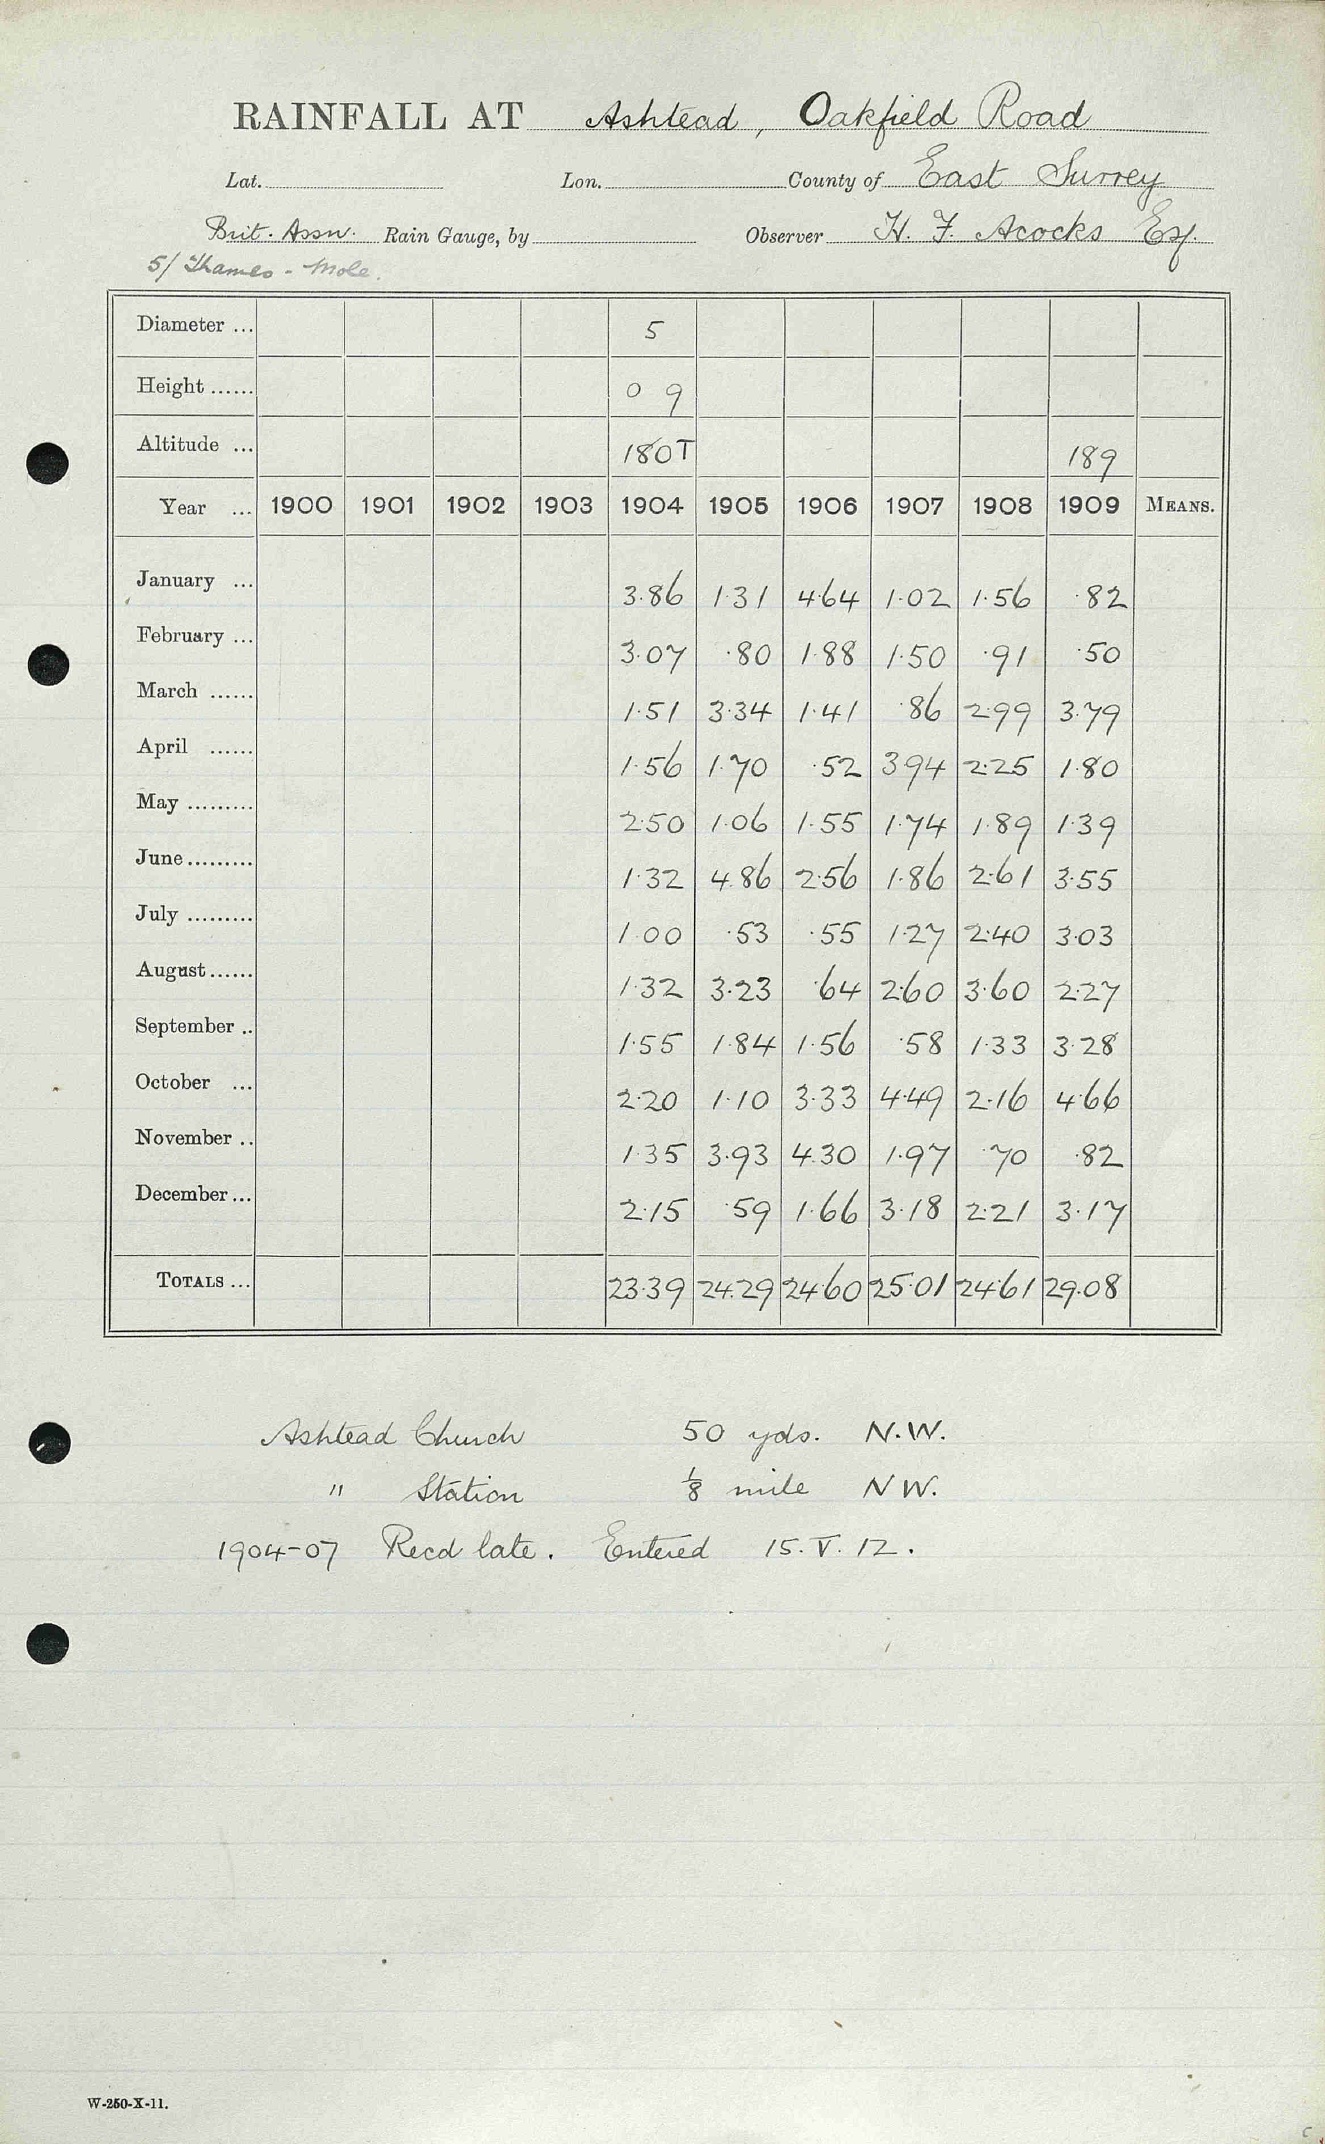 RAINFALL AT Ashtead, Oakfield Road
Lat. Lon. County of East Surrey
Brit. Assn. Rain Gauge, by Observer H. F. Acocks Esq.
5/ Thames - Mole.
Diameter ... 5
Height ...... 0 9
Altitude ... 180T 189
Year ... 1900 1901 1902 1903 1904 1905 1906 1907 1908 1909 MEANS.
January ... 3.86 1.31 4.64 1.02 1.56 .82
February ... 3.07 .80 1.88 1.50 .91 .50
March ...... 1.51 3.34 1.41 .86 2.99 3.79
April ...... 1.56 1.70 .52 3.94 2.25 1.80
May ......... 2.50 1.06 1.55 1.74 1.89 1.39
June ......... 1.32 4.86 2.56 1.86 2.61 3.55
July ......... 1.00 .53 .55 1.27 2.40 3.03
August ...... 1.32 3.23 .64 2.60 3.60 2.27
September .. 1.55 1.84 1.56 .58 1.33 3.28
October ... 2.20 1.10 3.33 4.49 2.16 4.66
November .. 1.35 3.93 4.30 1.97 .70 .82
December ... 2.15 .59 1.66 3.18 2.21 3.17
TOTALS ... 23.39 24.29 24.60 25.01 24.61 29.08
Ashtead Church 50 yds. N.W.
" Station 1/8 mile NW.
1904-07 Recd late. Entered 15.V.12.
W-250-X-11.